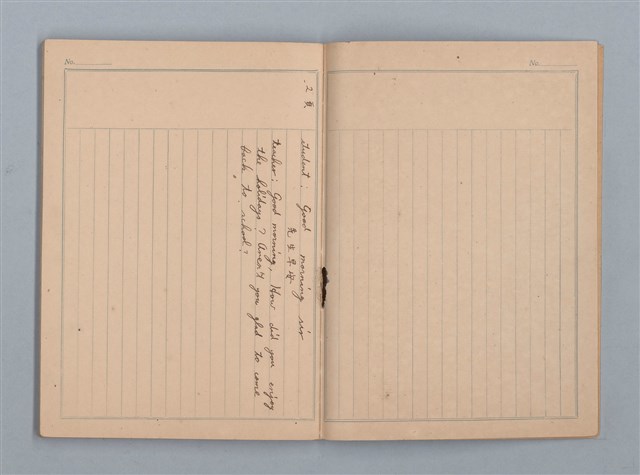 No.
No.
2
student: Good morning sir
先生早安
teacher: Good morning, How did you enjoy
the holidays? Aren't you glad to come
back to school?